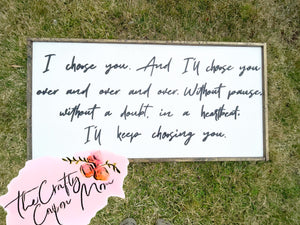 I choose you. And I'll choose you
over and over and over. Without pause,
without a doubt, in a heartbeat.
I'll keep choosing you.
The Crafty
Cajun Mom